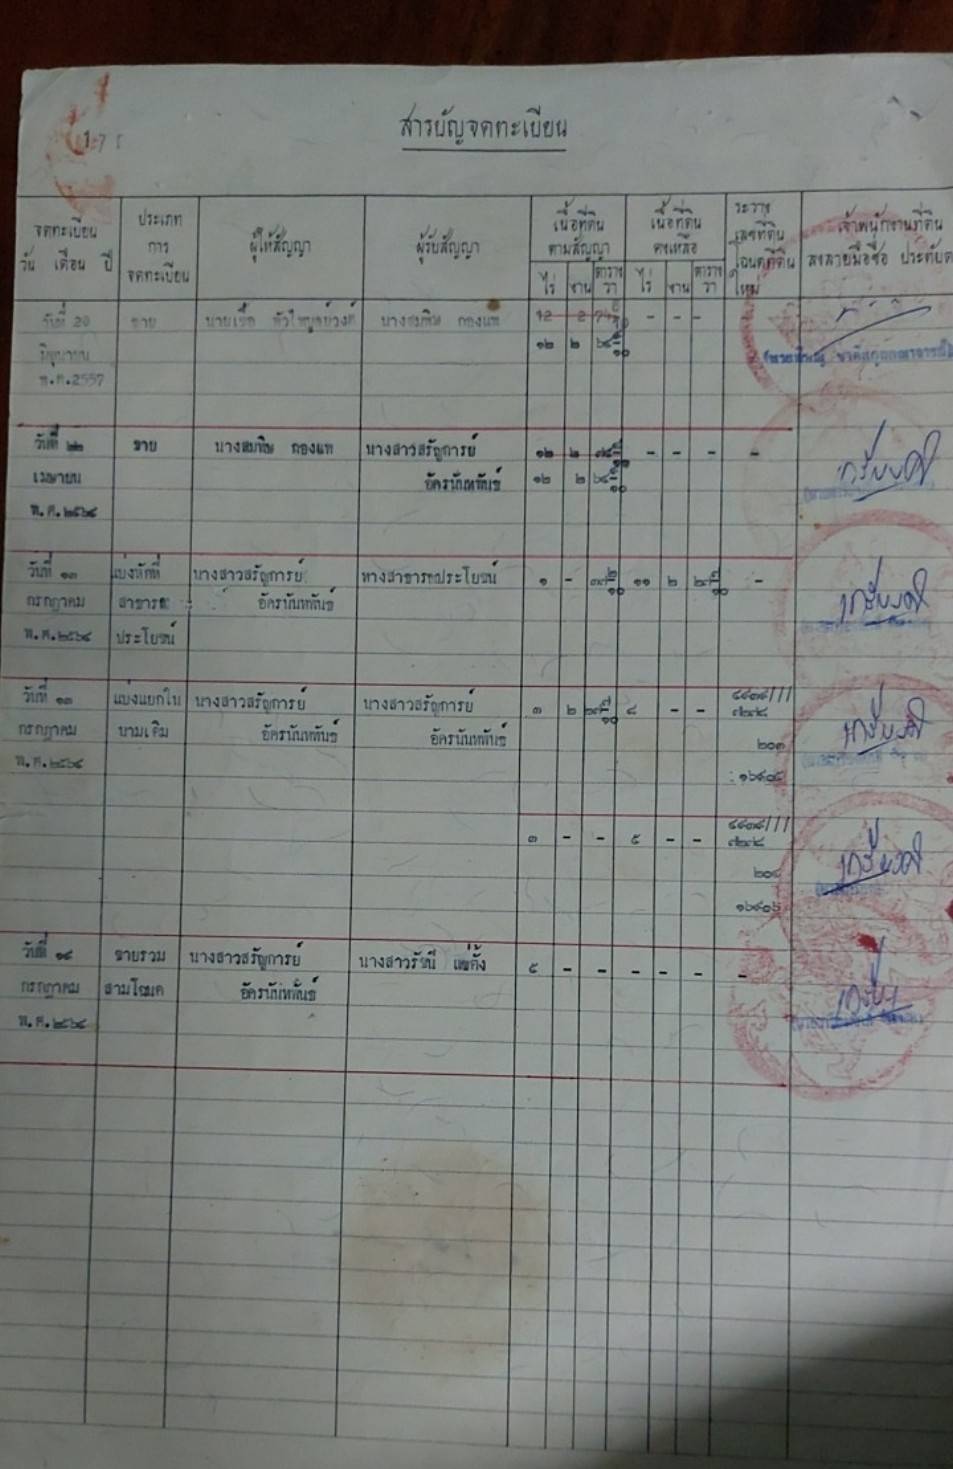 สารบัญจดทะเบียน
จดทะเบียน
วัน เดือน ปี
ประเภท
การ
จดทะเบียน
ผู้ให้สัญญา
ผู้รับสัญญา
เนื้อที่ดิน
ตามสัญญา
ไร่ งาน ตาราง
วา
เนื้อที่ดิน
คงเหลือ
ไร่ งาน ตาราง
วา
ระวาง
เลขที่ดิน
โฉนดที่ดิน
ใหม่
เจ้าพนักงานที่ดิน
ลงลายมือชื่อ ประทับตรา
วันที่ 20 ขาย นางสมพิษ กองแพ 12 2 - - -
มิถุนายน ๑๒ ๒
พ.ศ.2557
วันที่ ๒๒ ขาย นางสมพิษ กองแพ นางสาวสรัญการย์ ๑๒ ๒ - - - -
เมษายน อัครนันทพันธ์ ๑๒ ๒
พ.ศ.๒๕๖๔
วันที่ ๑๓ แบ่งหักที่ นางสาวสรัญการย์ ทางสาธารณประโยชน์ ๑ - ๑๑ ๒ -
กรกฎาคม สาธารณ อัครนันทพันธ์
พ.ศ.๒๕๖๔ ประโยชน์
วันที่ ๑๓ แบ่งแยกใน นางสาวสรัญการย์ นางสาวสรัญการย์ ๓ ๒ ๘ - -
กรกฎาคม นามเดิม อัครนันทพันธ์ อัครนันทพันธ์ ๒๐๓
พ.ศ.๒๕๖๔
๓ - - ๕ - -
๒๐๔
วันที่ ๑๔ ขายรวม นางสาวสรัญการย์ นางสาวรัชนี ๕ - - - - - -
กรกฎาคม สามโฉนด อัครนันทพันธ์
พ.ศ.๒๕๖๔